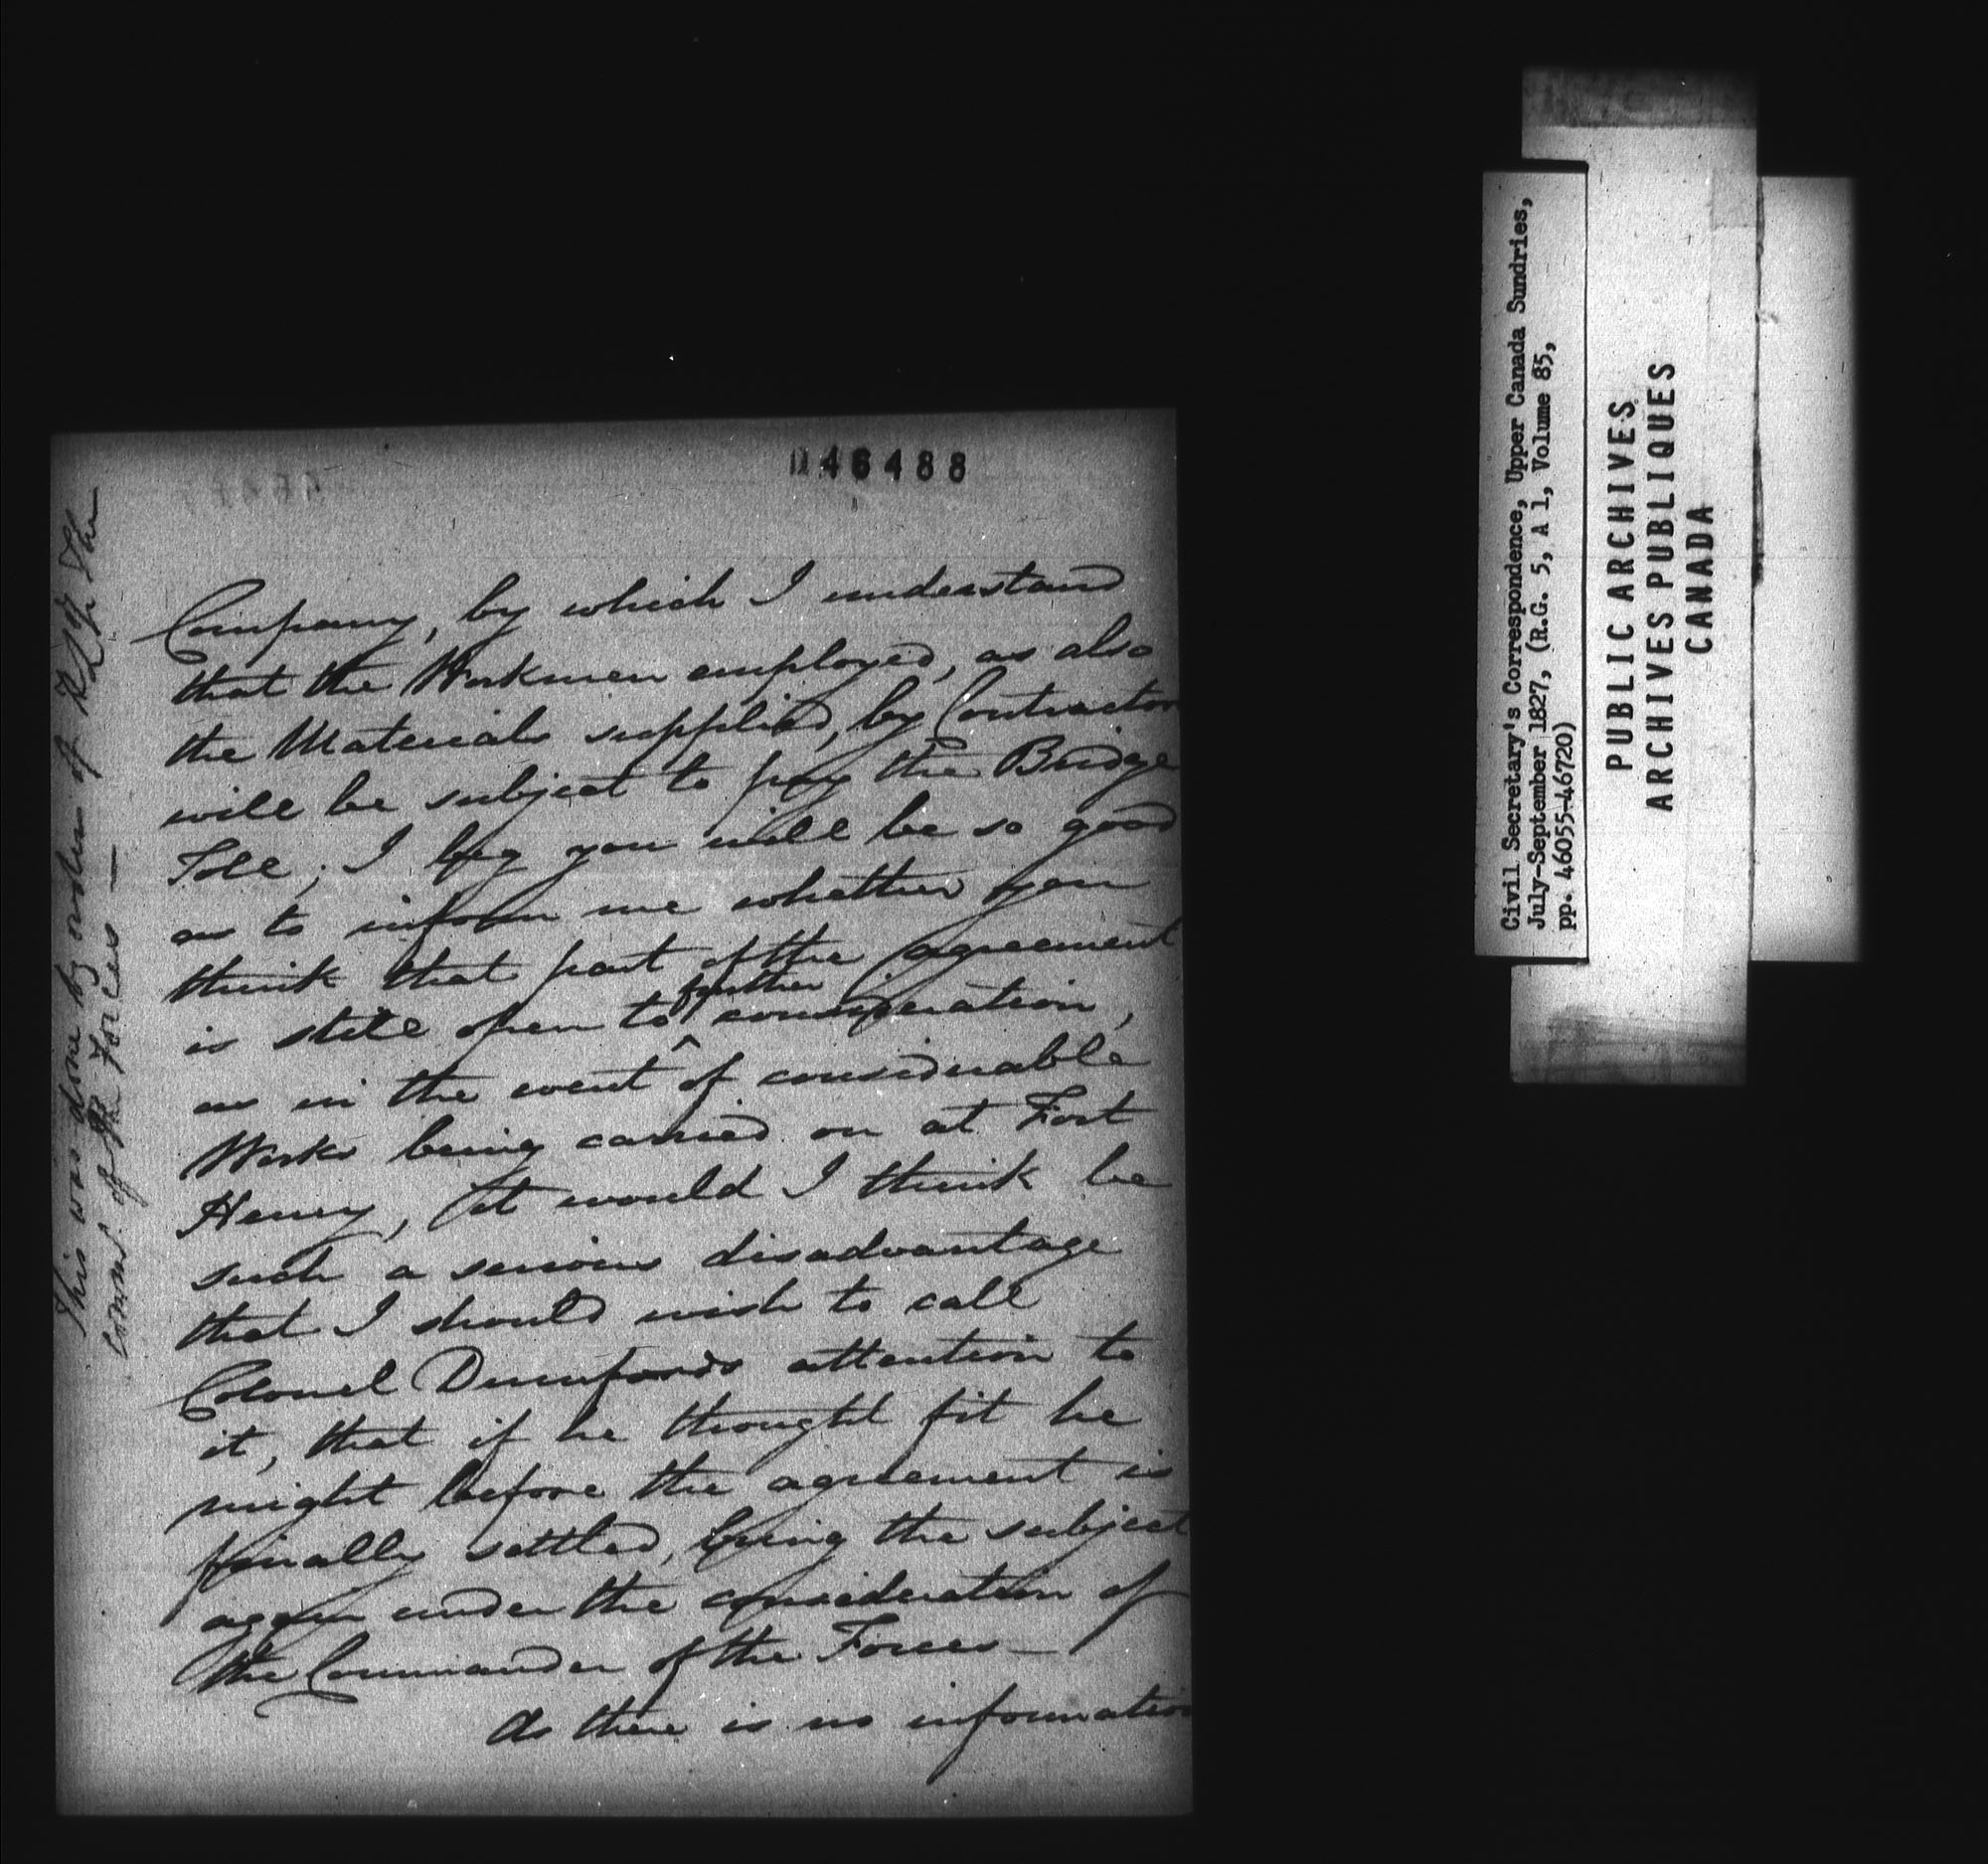 46488
Company, by which I understand
that the Workmen employed, as also
the Materials supplied, by Contractors
will be subject to pay the Bridge
Toll; I beg you will be so good
as to inform me whether you
think that part of the agreement
is still open to further consideration,
as in the event of considerable
Works being carried on at Fort
Henry, it would I think be
such a serious disadvantage
that I should wish to call
Colonel Durnfords attention to
it, that if he thought fit he
might before the agreement is
finally settled, bring the subject
again under the consideration of
the Commander of the Forces—
As there is no information
This was done by order of the
Comr. of the Forces —
Civil Secretary's Correspondence, Upper Canada Sundries,
July-September 1827, (R.G. 5, A 1, Volume 85,
pp. 46055-46720)
PUBLIC ARCHIVES
ARCHIVES PUBLIQUES
CANADA